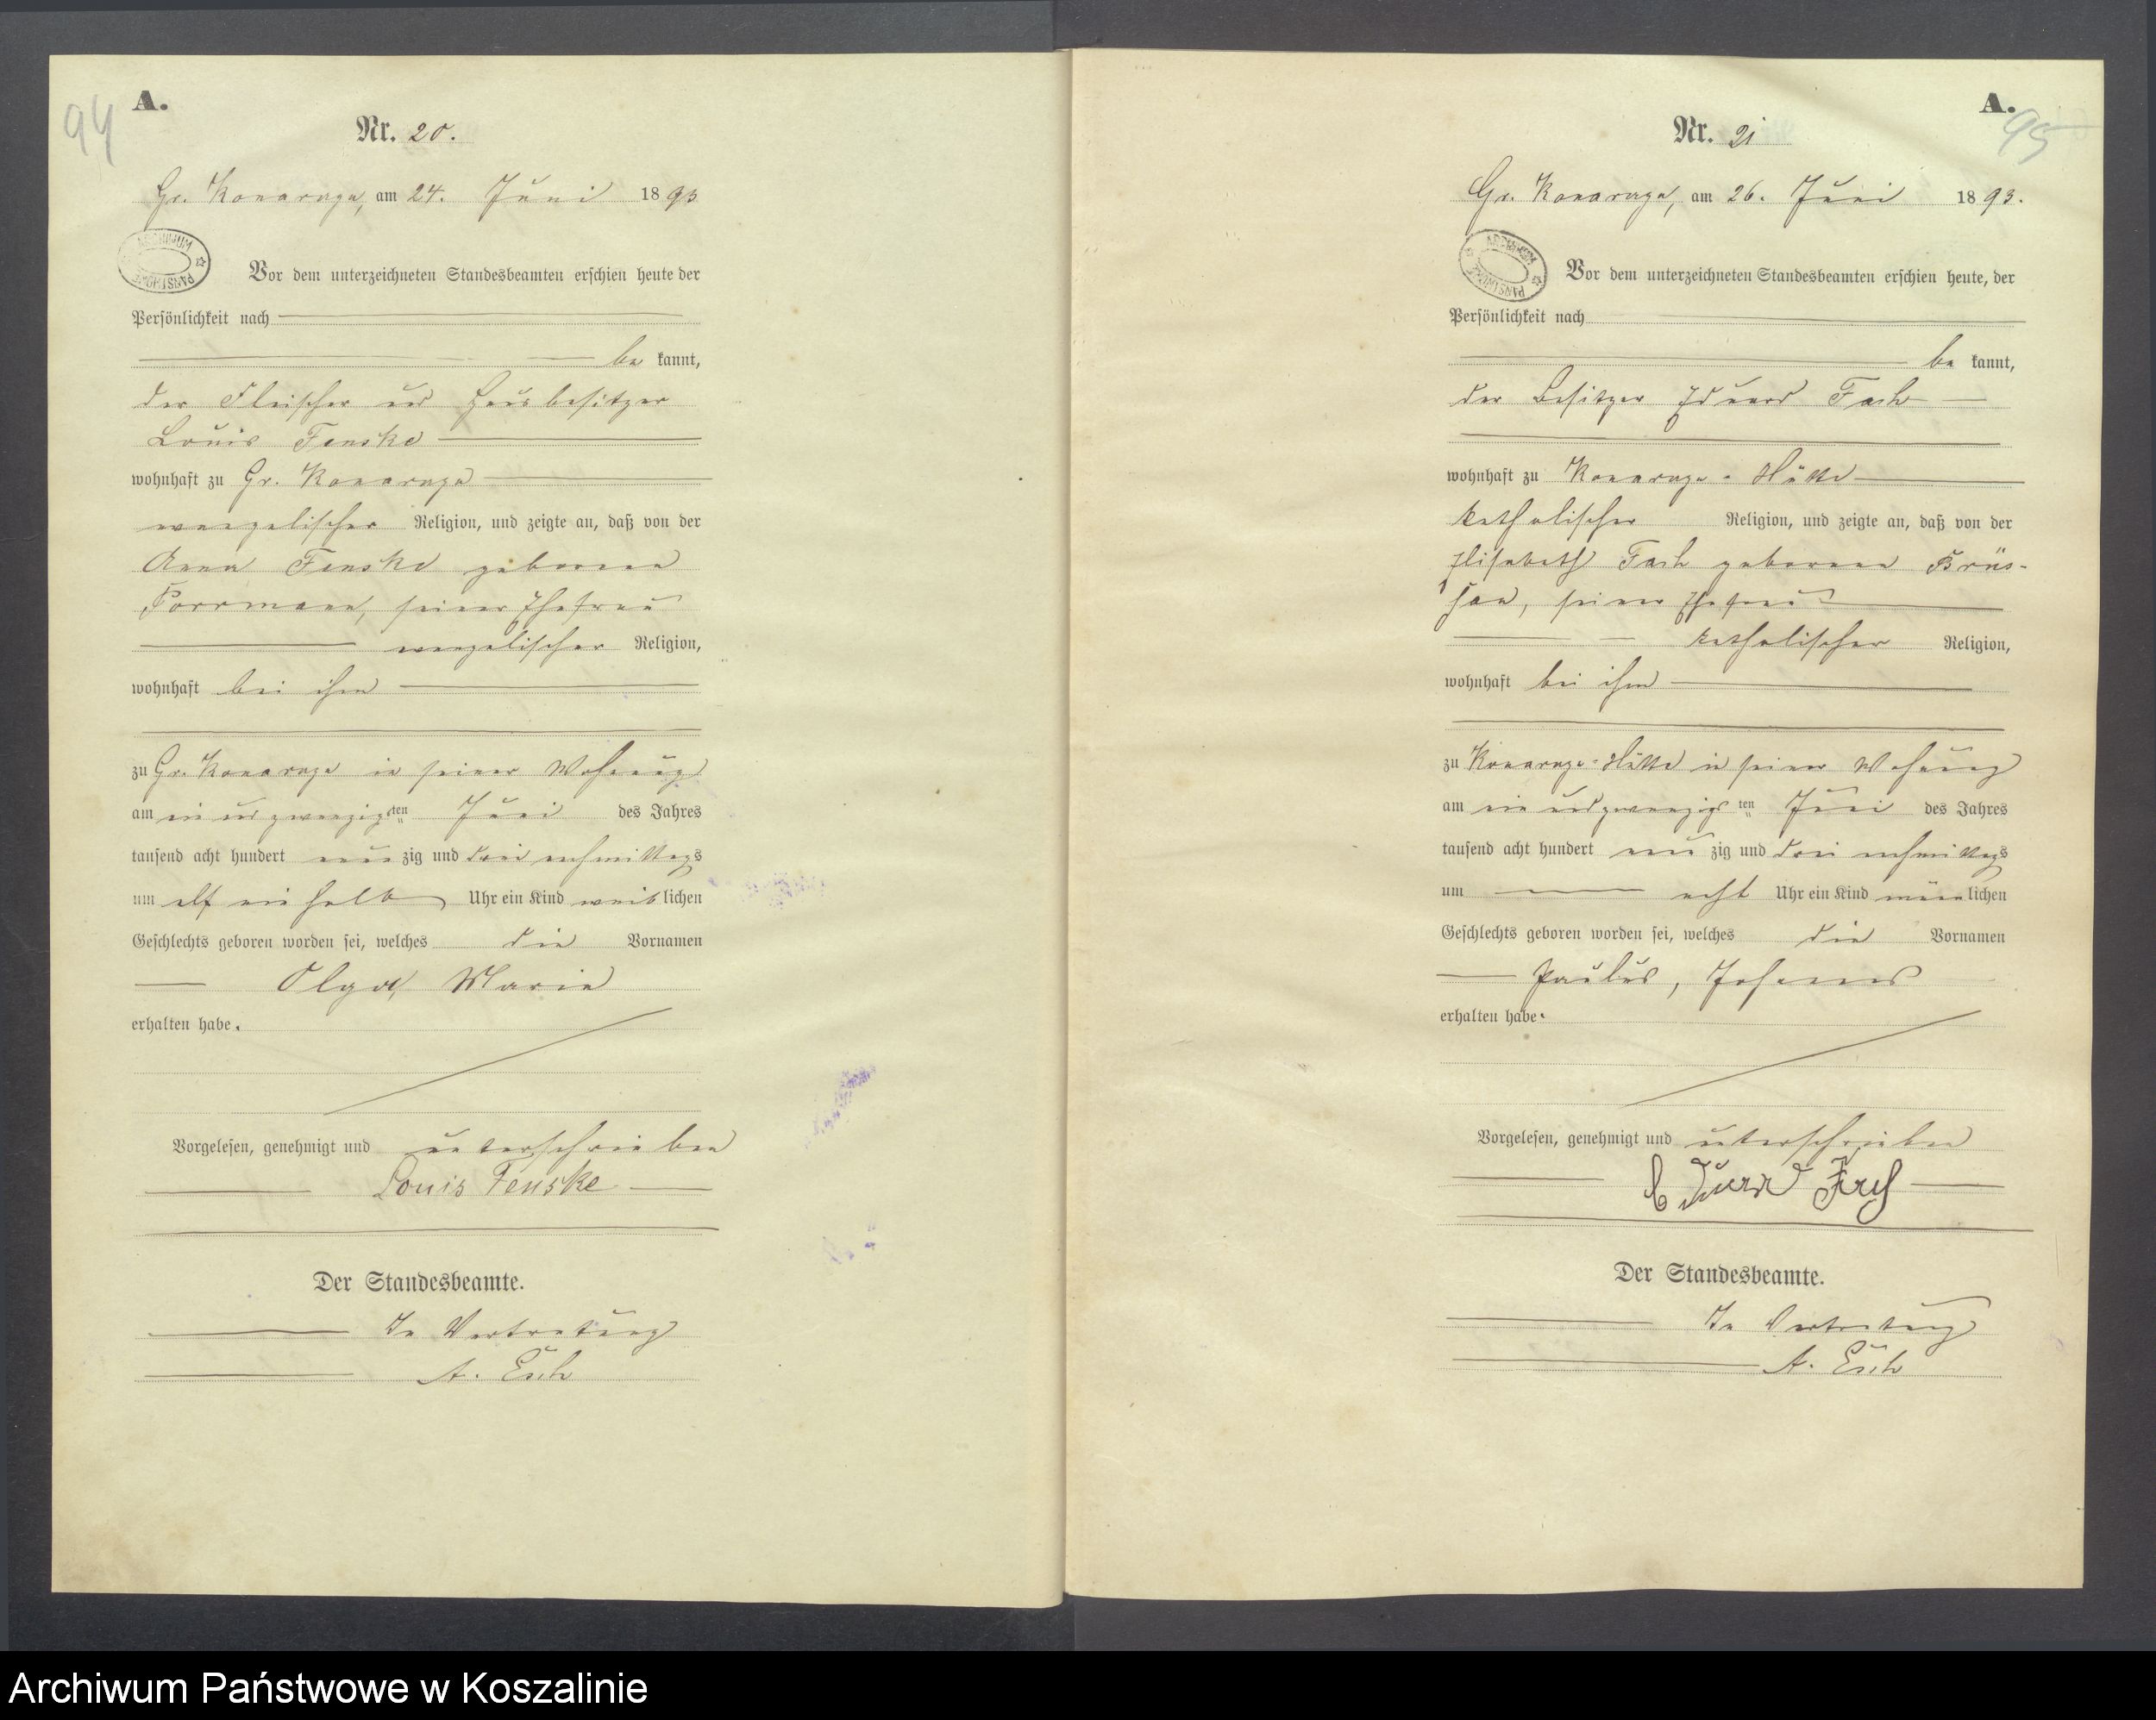 94
A.
Nr. 20.
Gr. Konarzyn, am 24. Juni 1893
ARCHIWUM PAŃSTWOWE
Vor dem unterzeichneten Standesbeamten erschien heute der
Persönlichkeit nach
be kannt,
der Fleischer und Hausbesitzer
Louis Fenske
wohnhaft zu Gr. Konarzyn
evangelischer Religion, und zeigte an, daß von der
Anna Fenske geborene
Porrmann, seiner Ehefrau
evangelischer Religion,
wohnhaft bei ihm
zu Gr. Konarzyn in seiner Wohnung
am ein und zwanzigsten Juni des Jahres
tausend acht hundert neunzig und drei nachmittags
um elf ein halb Uhr ein Kind weiblichen
Geschlechts geboren worden sei, welches die Vornamen
Olga, Marie
erhalten habe.
Vorgelesen, genehmigt und unterschrieben
Louis Fenske
Der Standesbeamte.
In Vertretung
A. Esch
A.
95
Nr. 21
Gr. Konarzyn, am 26. Juni 1893.
ARCHIWUM PAŃSTWOWE
Vor dem unterzeichneten Standesbeamten erschien heute, der
Persönlichkeit nach
be kannt,
der Besitzer Eduard Fach
wohnhaft zu Konarzyn-Hütte
katholischer Religion, und zeigte an, daß von der
Elisabeth Fach geborene
seiner Ehefrau
katholischer Religion,
wohnhaft bei ihm
zu Konarzyn-Hütte in seiner Wohnung
am ein und zwanzigsten Juni des Jahres
tausend acht hundert neunzig und drei nachmittags
um acht Uhr ein Kind männlichen
Geschlechts geboren worden sei, welches die Vornamen
Paulus, Johannes
erhalten habe.
Vorgelesen, genehmigt und unterschrieben
Eduard Fach
Der Standesbeamte.
In Vertretung
A. Esch
Archiwum Państwowe w Koszalinie